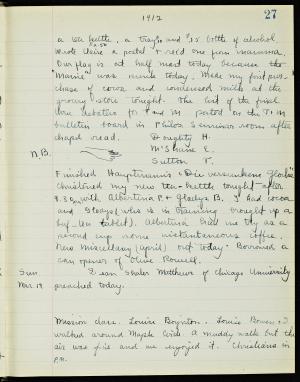 1912
27
a tea kettle, a tray, and 15¢ bottle of alcohol.
wrote Claire a postal & rec'd one from mamma.
Our flag is at half mast today because the
"Maine" was sunk today. Made my first pur-
chase of cocoa and condensed milk at the
grocery store tonight. The list of the final
debaters for T and M posted on the T & M
bulletin board in Philos Seminar room after
chapel read. Doughty H.
N.B. McShane E.
Sutton T.
Finished Hauptmann's "Die versunkene Glocke"
Christened my new tea-kettle tonight after
8.30 with Albertina P. & Gladys B. I had cocoa
and Gladys (who is in training brought up a
Albertina had me try as a
second cup some instantaneous coffee.
new Miscellany (April) out today. Borrowed a
can opener of Olive Rowell.
Sun. Dean Shailer Matthews of Chicago University
Mar. 17 preached today.
Mission class. Louise Boynton, Louise Bowen & I
walked around Maple Circle. A muddy walk but the
air was fine and we enjoyed it. Christians in
P.M.